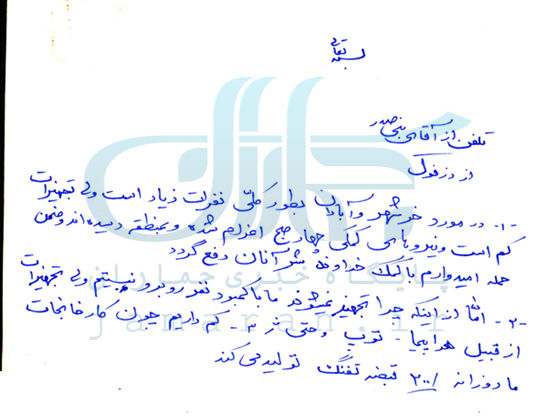 بسمه تعالی
تلفن از آقای بنی صدر
از دزفول
۱- در مورد خرمشهر و آبادان بطور کلی نفرات زیاد است ولی تجهیزات
کم است و نیروهای کمکی چهار صبح اعزام شده و بمنطقه رسیده‌اند و ضمن
حمله امیدواریم با کمک خداوند شر آنان دفع گردد
۲- اما از اینکه چرا تجهیز نمیشوند ما با کمبود نفر روبرو نیستیم ولی تجهیزات
از قبیل هواپیما - توپ و حتی ژ-۳ کم داریم چون کارخانجات
ما روزانه ۲۰۰ قبضه تفنگ تولید می‌کند
جماران
پایگاه خبری جماران
jamaran.ir